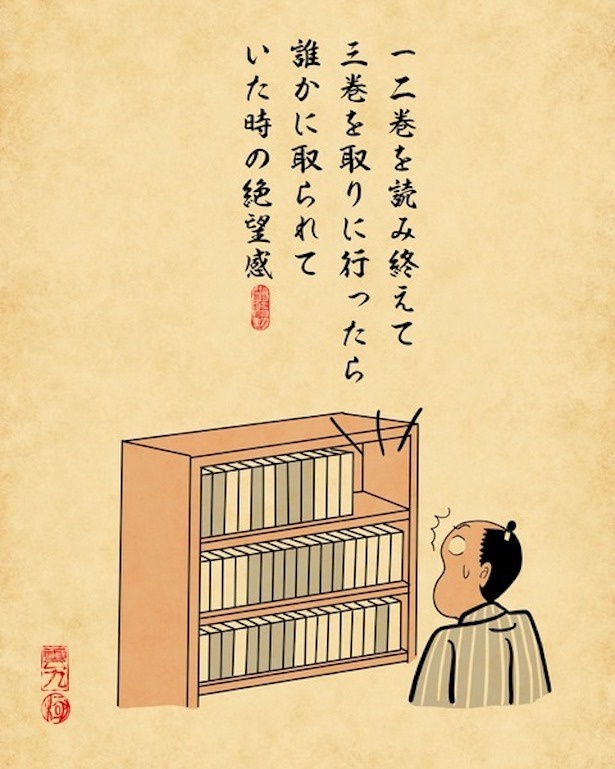 一二巻を読み終えて
三巻を取りに行ったら
誰かに取られて
いた時の絶望感